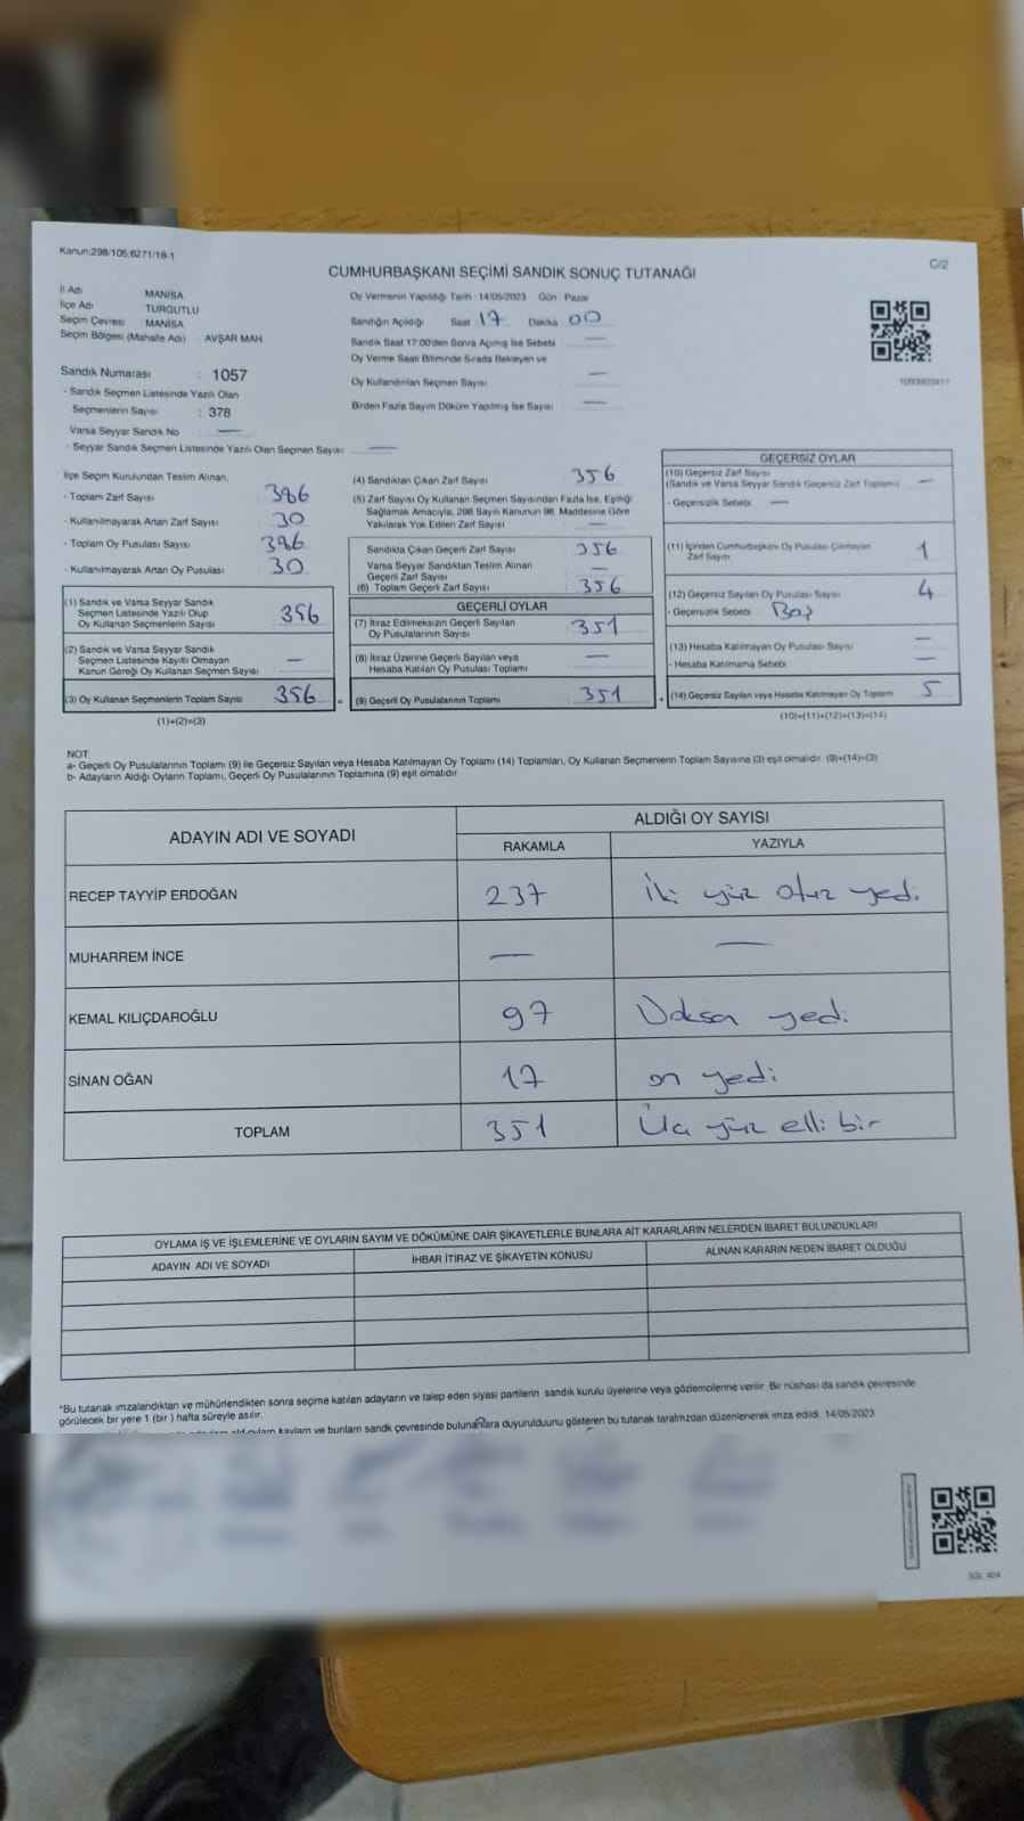 Kanun:298/105;6271/18-1
C/2
CUMHURBAŞKANI SEÇİMİ SANDIK SONUÇ TUTANAĞI
İl Adı MANİSA
İlçe Adı TURGUTLU
Seçim Çevresi MANİSA
Seçim Bölgesi (Mahalle Adı) AVŞAR MAH
Sandık Numarası : 1057
- Sandık Seçmen Listesinde Yazılı Olan
Seçmenlerin Sayısı : 378
Varsa Seyyar Sandık No —
- Seyyar Sandık Seçmen Listesinde Yazılı Olan Seçmen Sayısı —
Oy Vermenin Yapıldığı Tarih : 14/05/2023 Gün : Pazar
Sandığın Açıldığı Saat 17 Dakika 00
Sandık Saat 17:00'den Sonra Açılmış İse Sebebi —
Oy Verme Saati Bitiminde Sırada Bekleyen ve
Oy Kullandırılan Seçmen Sayısı —
Birden Fazla Sayım Döküm Yapılmış İse Sayısı —
İlçe Seçim Kurulundan Teslim Alınan;
- Toplam Zarf Sayısı 386
- Kullanılmayarak Artan Zarf Sayısı 30
- Toplam Oy Pusulası Sayısı 386
- Kullanılmayarak Artan Oy Pusulası 30
(1) Sandık ve Varsa Seyyar Sandık
Seçmen Listesinde Yazılı Olup
Oy Kullanan Seçmenlerin Sayısı 356
(2) Sandık ve Varsa Seyyar Sandık
Seçmen Listesinde Kayıtlı Olmayan
Kanun Gereği Oy Kullanan Seçmen Sayısı —
(3) Oy Kullanan Seçmenlerin Toplam Sayısı 356
(1)+(2)=(3)
(4) Sandıktan Çıkan Zarf Sayısı 356
(5) Zarf Sayısı Oy Kullanan Seçmen Sayısından Fazla İse, Eşitliği
Sağlamak Amacıyla, 298 Sayılı Kanunun 98. Maddesine Göre
Yakılarak Yok Edilen Zarf Sayısı —
Sandıkta Çıkan Geçerli Zarf Sayısı 356
Varsa Seyyar Sandıktan Teslim Alınan
Geçerli Zarf Sayısı —
(6) Toplam Geçerli Zarf Sayısı 356
GEÇERLİ OYLAR
(7) İtiraz Edilmeksizin Geçerli Sayılan
Oy Pusulalarının Sayısı 351
(8) İtiraz Üzerine Geçerli Sayılan veya
Hesaba Katılan Oy Pusulası Toplamı —
(9) Geçerli Oy Pusulalarının Toplamı 351
GEÇERSİZ OYLAR
(10) Geçersiz Zarf Sayısı
(Sandık ve Varsa Seyyar Sandık Geçersiz Zarf Toplamı) —
- Geçersizlik Sebebi —
(11) İçinden Cumhurbaşkanı Oy Pusulası Çıkmayan
Zarf Sayısı 1
(12) Geçersiz Sayılan Oy Pusulası Sayısı 4
- Geçersizlik Sebebi Boş
(13) Hesaba Katılmayan Oy Pusulası Sayısı —
- Hesaba Katılmama Sebebi —
(14) Geçersiz Sayılan veya Hesaba Katılmayan Oy Toplamı 5
(10)+(11)+(12)+(13)=(14)
NOT:
a- Geçerli Oy Pusulalarının Toplamı (9) ile Geçersiz Sayılan veya Hesaba Katılmayan Oy Toplamı (14) Toplamları, Oy Kullanan Seçmenlerin Toplam Sayısına (3) eşit olmalıdır. (9)+(14)=(3)
b- Adayların Aldığı Oyların Toplamı, Geçerli Oy Pusulalarının Toplamına (9) eşit olmalıdır
ADAYIN ADI VE SOYADI ALDIĞI OY SAYISI
RAKAMLA YAZIYLA
RECEP TAYYİP ERDOĞAN 237 İki yüz otuz yedi
MUHARREM İNCE — —
KEMAL KILIÇDAROĞLU 97 Doksan yedi
SİNAN OĞAN 17 on yedi
TOPLAM 351 Üç yüz elli bir
OYLAMA İŞ VE İŞLEMLERİNE VE OYLARIN SAYIM VE DÖKÜMÜNE DAİR ŞİKAYETLERLE BUNLARA AİT KARARLARIN NELERDEN İBARET BULUNDUKLARI
ADAYIN ADI VE SOYADI İHBAR İTİRAZ VE ŞİKAYETİN KONUSU ALINAN KARARIN NEDEN İBARET OLDUĞU
*Bu tutanak imzalandıktan ve mühürlendikten sonra seçime katılan adayların ve talep eden siyasi partilerin sandık kurulu üyelerine veya gözlemcilerine verilir. Bir nüshası da sandık çevresinde
görülecek bir yere 1 (bir ) hafta süreyle asılır.
ve bunların sandık çevresinde bulunanlara duyurulduunu gösteren bu tutanak tarafımızdan düzenlenerek imza edildi. 14/05/2023